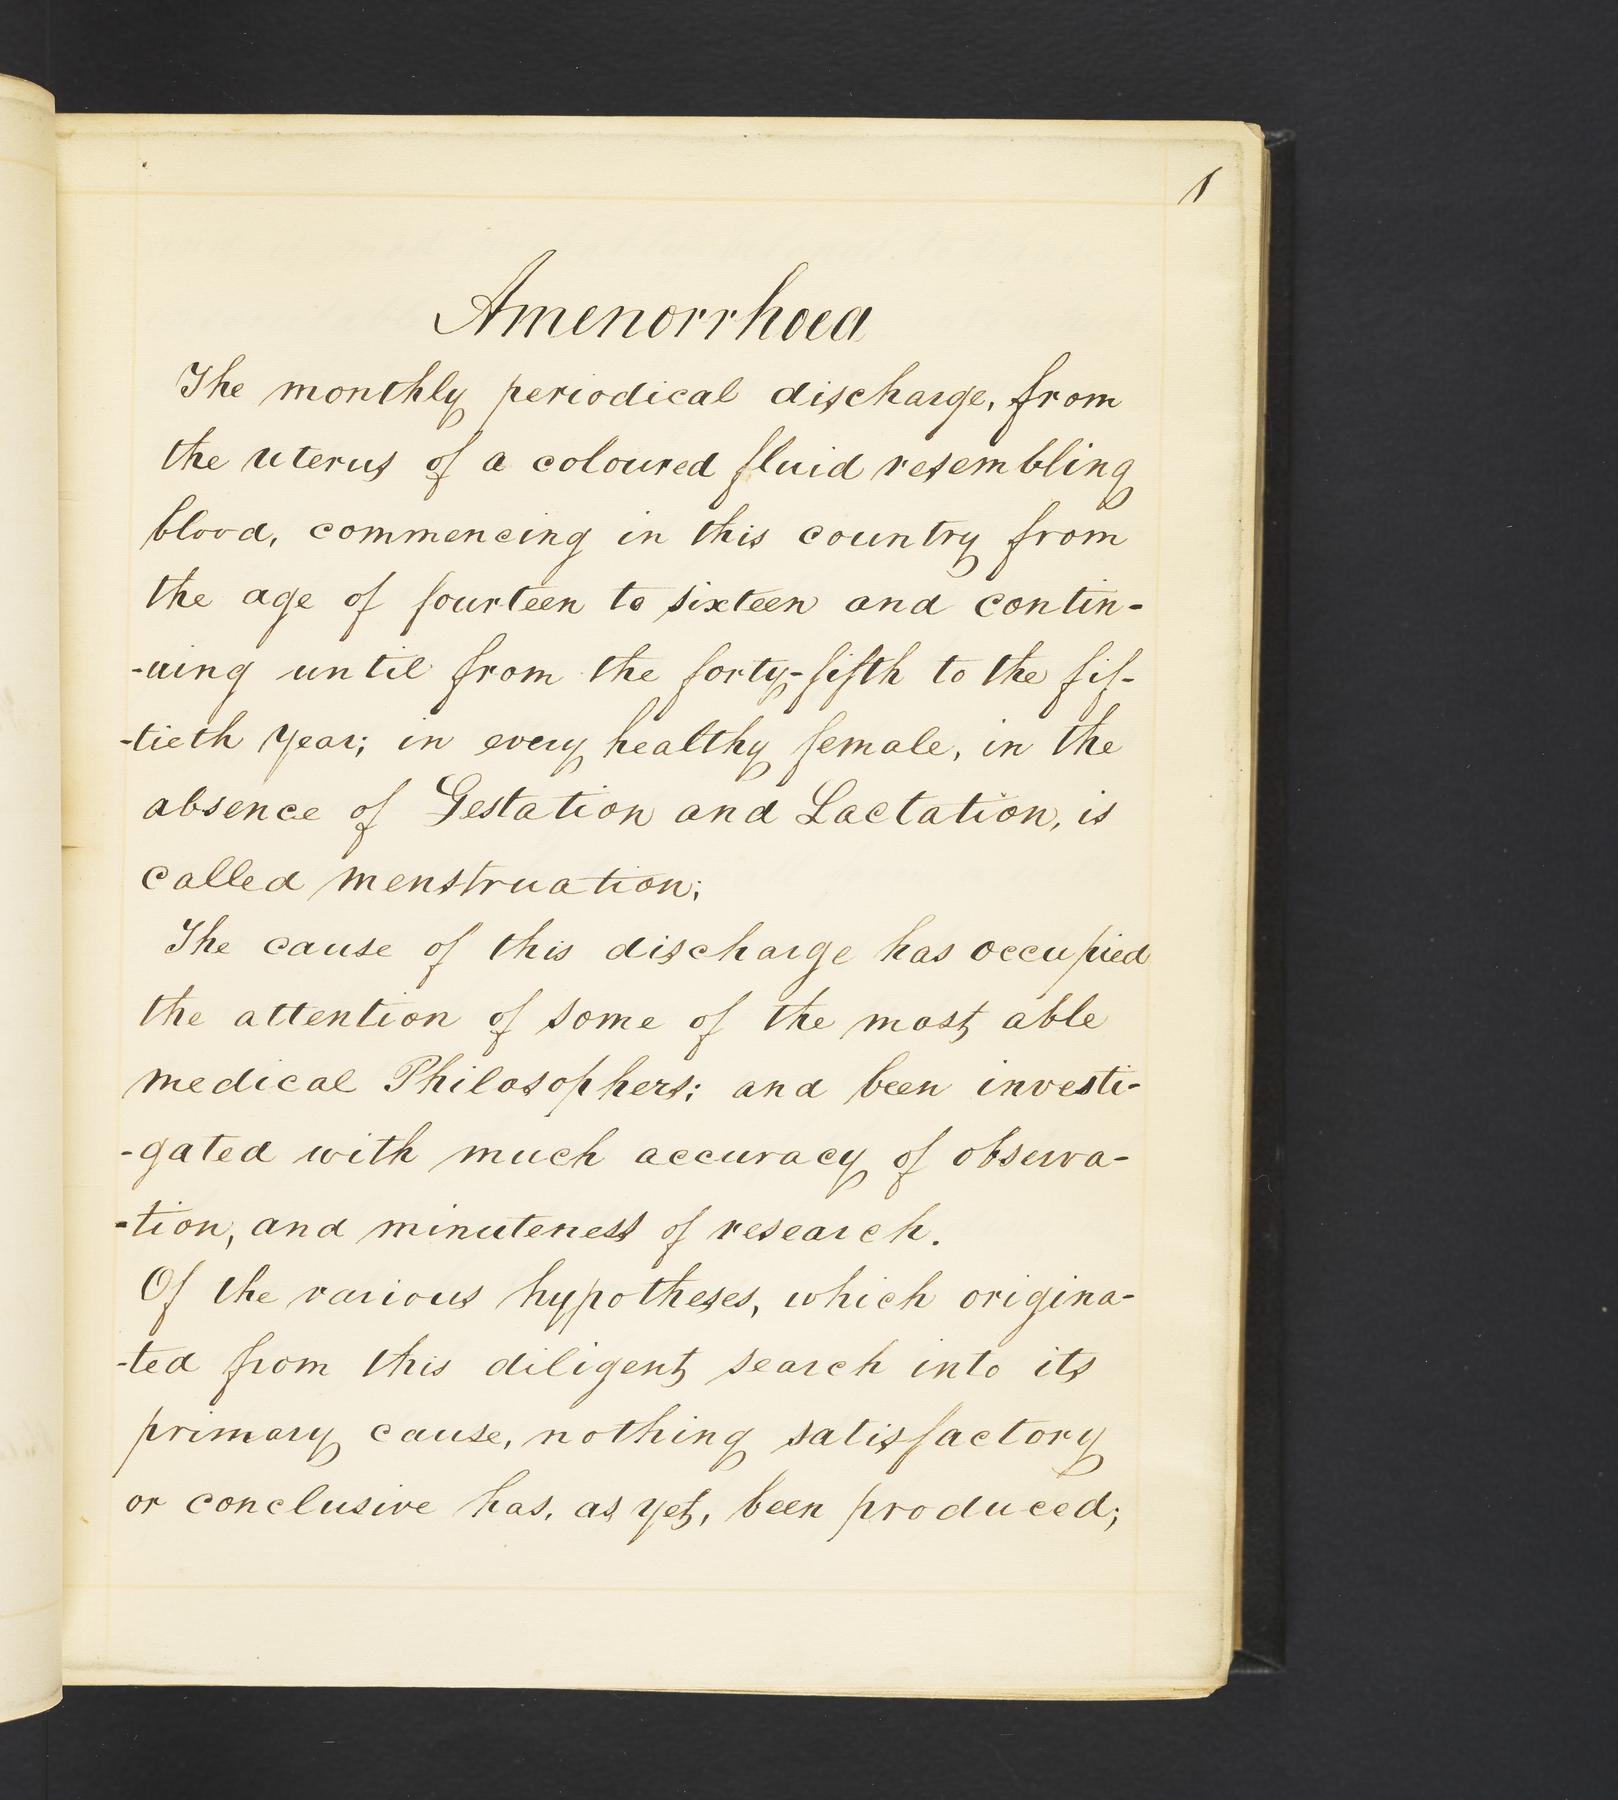 1
Amenorrhoea
The monthly periodical discharge, from
the uterus of a coloured fluid resembling
blood, commencing in this country from
the age of fourteen to sixteen and contin-
-uing until from the forty-fifth to the fif-
-tieth year; in every healthy female, in the
absence of Gestation and Lactation, is
called menstruation;
The cause of this discharge has occupied
the attention of some of the most able
medical Philosophers; and been investi-
-gated with much accuracy of observa-
-tion, and minuteness of research.
Of the various hypotheses, which origina-
-ted from this diligent search into its
primary cause, nothing satisfactory
or conclusive has, as yet, been produced;